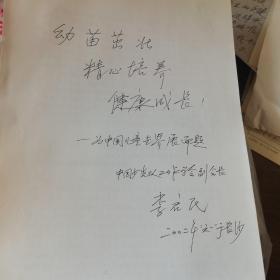 幼苗茁壮
精心培养
健康成长！
—为中国儿童
中国少先队工作学会副会长
李启民
二〇〇二年 于长沙